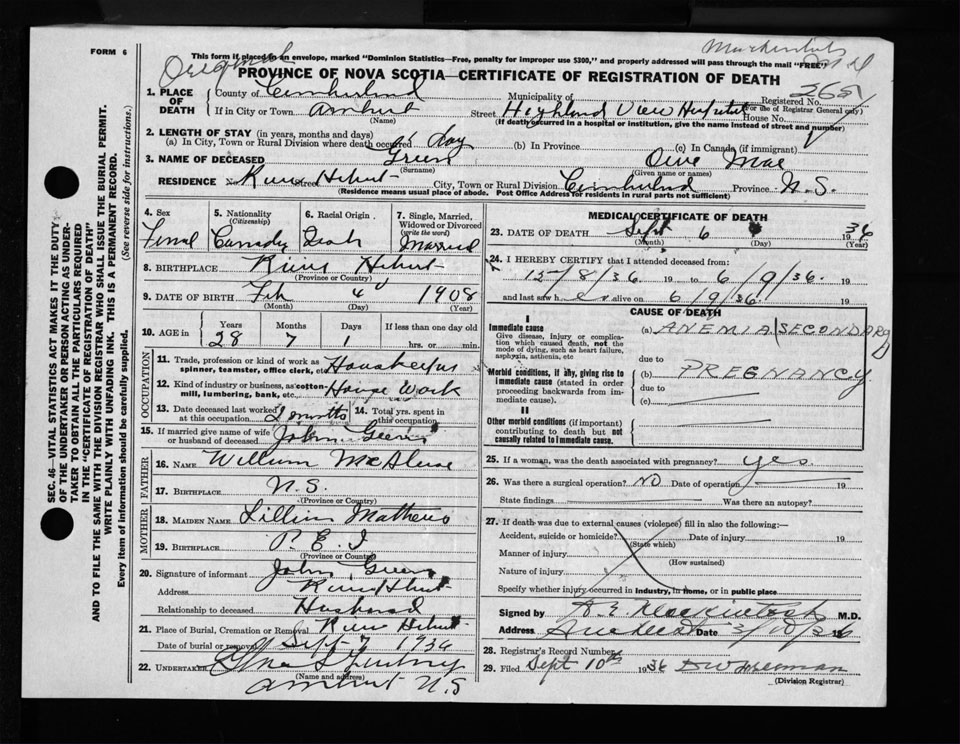 FORM 6
This form if placed in an envelope, marked "Dominion Statistics—Free, penalty for improper use $300," and properly addressed will pass through the mail "FREE"
PROVINCE OF NOVA SCOTIA—CERTIFICATE OF REGISTRATION OF DEATH
1. PLACE OF DEATH
County of Cumberland Municipality of Registered No. 2651
(For use of Registrar General only)
If in City or Town Amherst Street Highland View Hospital House No.
(Name) (If death occurred in a hospital or institution, give the name instead of street and number)
2. LENGTH OF STAY (in years, months and days)
(a) In City, Town or Rural Division where death occurred day (b) In Province (c) In Canada (if immigrant)
3. NAME OF DECEASED Green Mae
(Surname) (Given name or names)
RESIDENCE No. River Hebert Street City, Town or Rural Division Cumberland Province N.S.
(Residence means usual place of abode. Post Office Address for residents in rural parts not sufficient)
SEC. 46—VITAL STATISTICS ACT MAKES IT THE DUTY
OF THE UNDERTAKER OR PERSON ACTING AS UNDER-
TAKER TO OBTAIN ALL THE PARTICULARS REQUIRED
IN THE "CERTIFICATE OF REGISTRATION OF DEATH"
AND TO FILE THE SAME WITH THE DIVISION REGISTRAR WHO SHALL ISSUE THE BURIAL PERMIT.
WRITE PLAINLY WITH UNFADING INK. THIS IS A PERMANENT RECORD.
Every item of information should be carefully supplied. (See reverse side for instructions.)
4. Sex 5. Nationality (Citizenship) 6. Racial Origin 7. Single, Married, Widowed or Divorced (write the word)
Married
8. BIRTHPLACE River Hebert
(Province or Country)
9. DATE OF BIRTH Feb 4 1908
(Month) (Day) (Year)
10. AGE in Years Months Days If less than one day
28 7 1 hrs. or min.
OCCUPATION
11. Trade, profession or kind of work as spinner, teamster, office clerk, etc.
12. Kind of industry or business, as cotton-mill, lumbering, bank, etc. House Work
13. Date deceased last worked at this occupation 2 months 14. Total yrs. spent in this occupation
15. If married give name of wife or husband of deceased John Green
FATHER
16. NAME William
17. BIRTHPLACE N.S.
(Province or Country)
MOTHER
18. MAIDEN NAME
19. BIRTHPLACE P.E.I
(Province or Country)
20. Signature of informant John Green
Address River Hebert
Relationship to deceased Husband
21. Place of Burial, Cremation or Removal River Hebert
Date of burial or removal Sept 7 1936
22. UNDERTAKER
(Name and address)
Amherst N.S
MEDICAL CERTIFICATE OF DEATH
23. DATE OF DEATH Sept 6 1936
(Month) (Day) (Year)
24. I HEREBY CERTIFY that I attended deceased from:
15/8/36 19 to 6/9/36. 19
and last saw h alive on 6/9/36. 19
CAUSE OF DEATH
I
Immediate cause
Give disease, injury or complication which caused death, not the mode of dying, such as heart failure, asphyxia, asthenia, etc
(a) ANEMIA (SECONDARY)
due to
Morbid conditions, if any, giving rise to immediate cause (stated in order proceeding backwards from immediate cause).
(b) PREGNANCY
due to
(c)
II
Other morbid conditions (if important) contributing to death but not causally related to immediate cause.
25. If a woman, was the death associated with pregnancy? yes
26. Was there a surgical operation? NO Date of operation 19
State findings Was there an autopsy?
27. If death was due to external causes (violence) fill in also the following:—
Accident, suicide or homicide? Date of injury 19
(State which)
Manner of injury
(How sustained)
Nature of injury
Specify whether injury occurred in industry, in home, or in public place
Signed by M.D.
Address Date
28. Registrar's Record Number
29. Filed Sept 10th 1936
(Division Registrar)